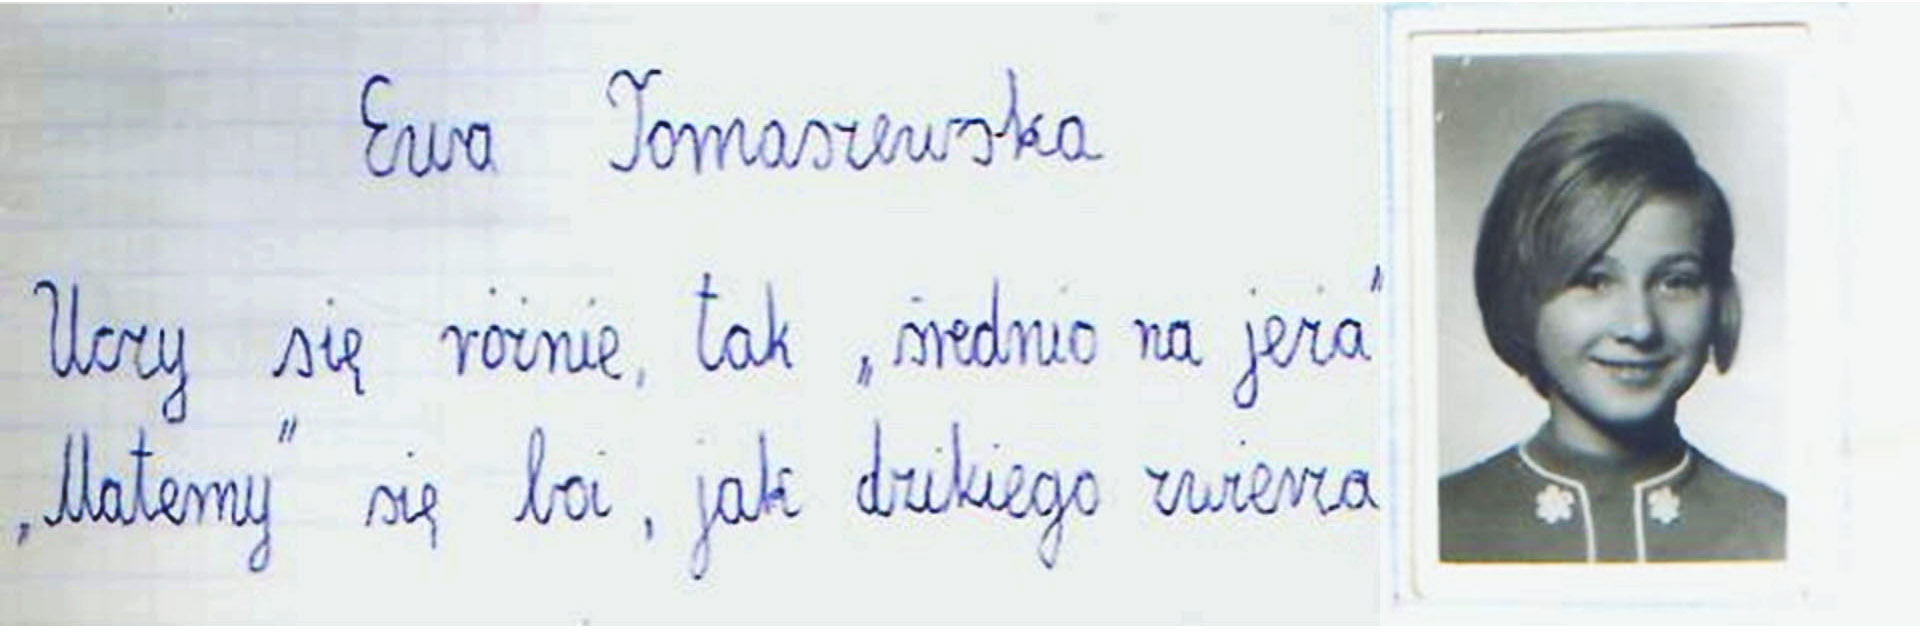 Ewa Tomaszewska
Uczy się różnie, tak „średnio na jeża”
„Matemy” się boi, jak dzikiego zwierza